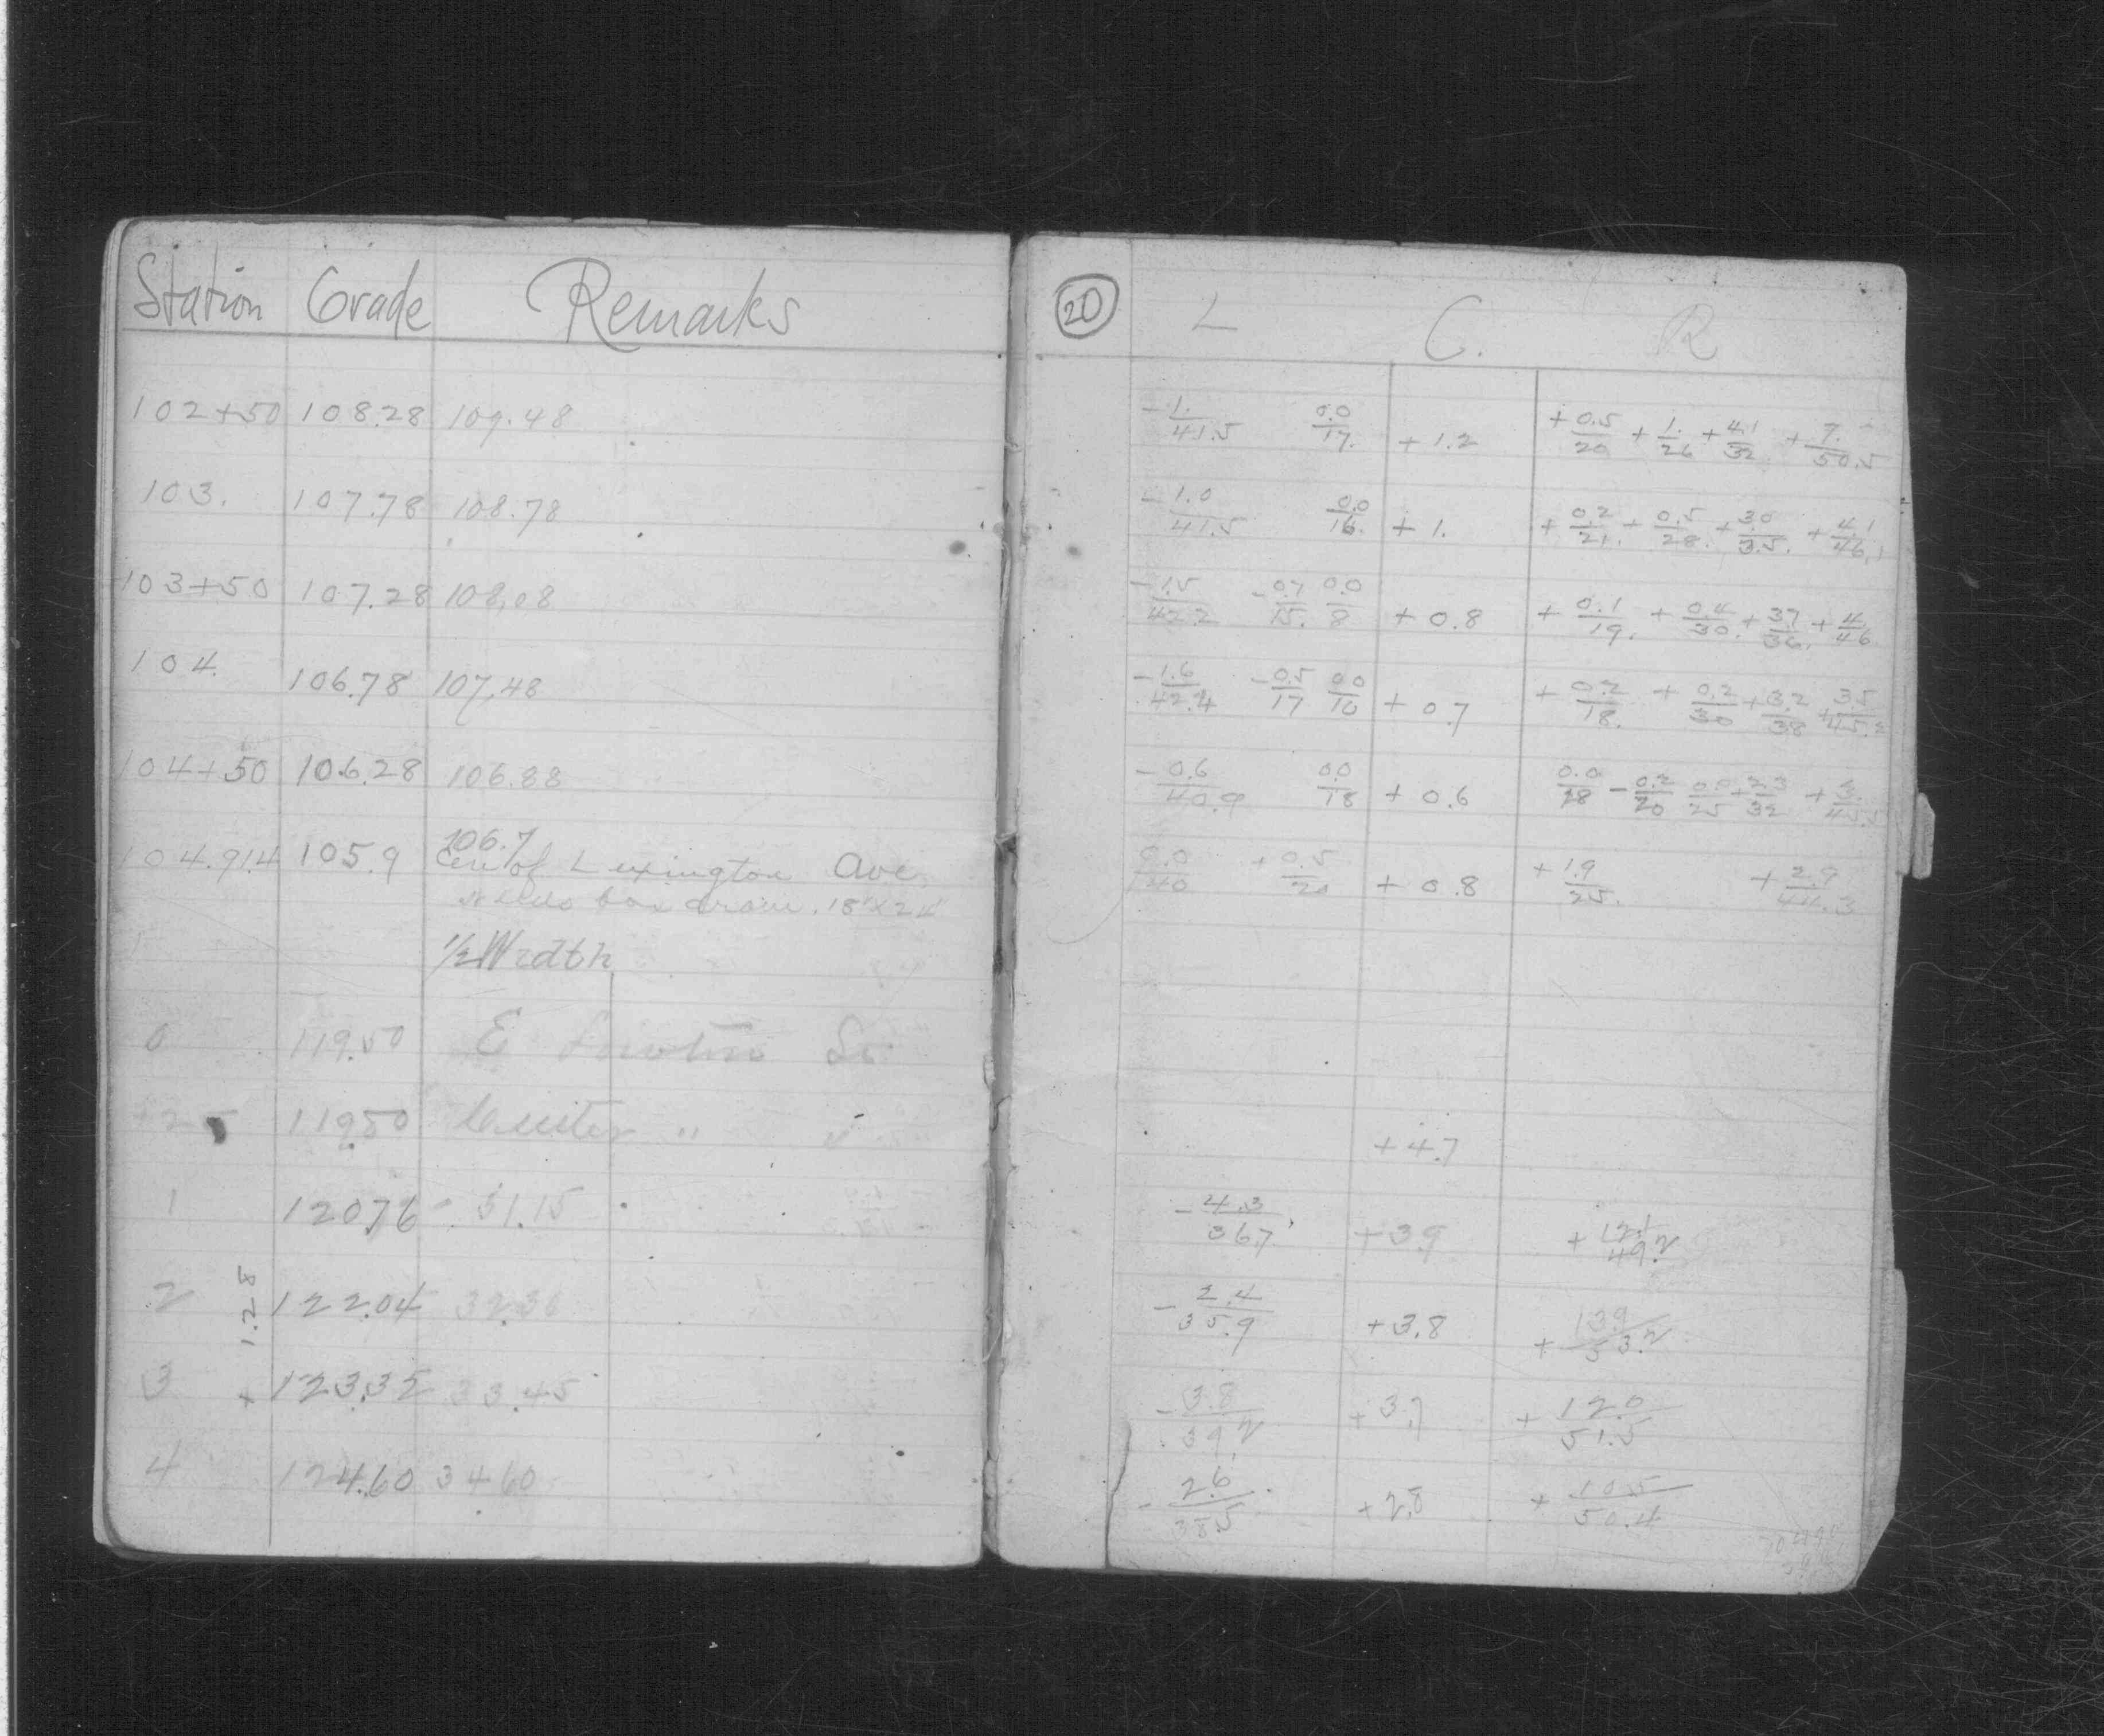 Station Grade Remarks
102+50 108.28 109.48
103. 107.78 108.78
103+50 107.28 108.08
104. 106.78 107.48
104+50 106.28 106.88
106.7
104.914 105.9 Cen of Lexington Ave.
box drain. 18"x24"
1/2 Width
0 119.50 E St.
+25 119.50 Center " "
1 120.76 31.15
2 122.04 32.36
+ 1.28
3 123.32 33.45
4 124.60 34.60
20 L C. R
-1./41.5 0.0/17. +1.2 +0.5/20 +1./26 +4.1/32. +7./50.5
-1.0/41.5 0.0/16. +1. +0.2/21. +0.5/28. +3.0/35. +4.1/46.1
-1.5/42.2 -0.7/15. 0.0/8 +0.8 +0.1/19. +0.4/30. +3.7/36. +4./46
-1.6/42.4 -0.5/17 0.0/10 +0.7 +0.2/18. +0.2/30 +3.2/38 +3.5/45.2
-0.6/40.9 0.0/18 +0.6 0.0/18 -0.2/20 0.0/25 +2.3/32 +3./45.5
0.0/40 +0.5/20 +0.8 +1.9/25. +2.9/44.3
+4.7
-4.3/36.7 +3.9 +12.1/49.2
-2.4/35.9 +3.8 +13.9/53.2
-3.8/39.2 +3.7 +12.0/51.5
-2.6/38.5 +2.8 +10.5/50.4